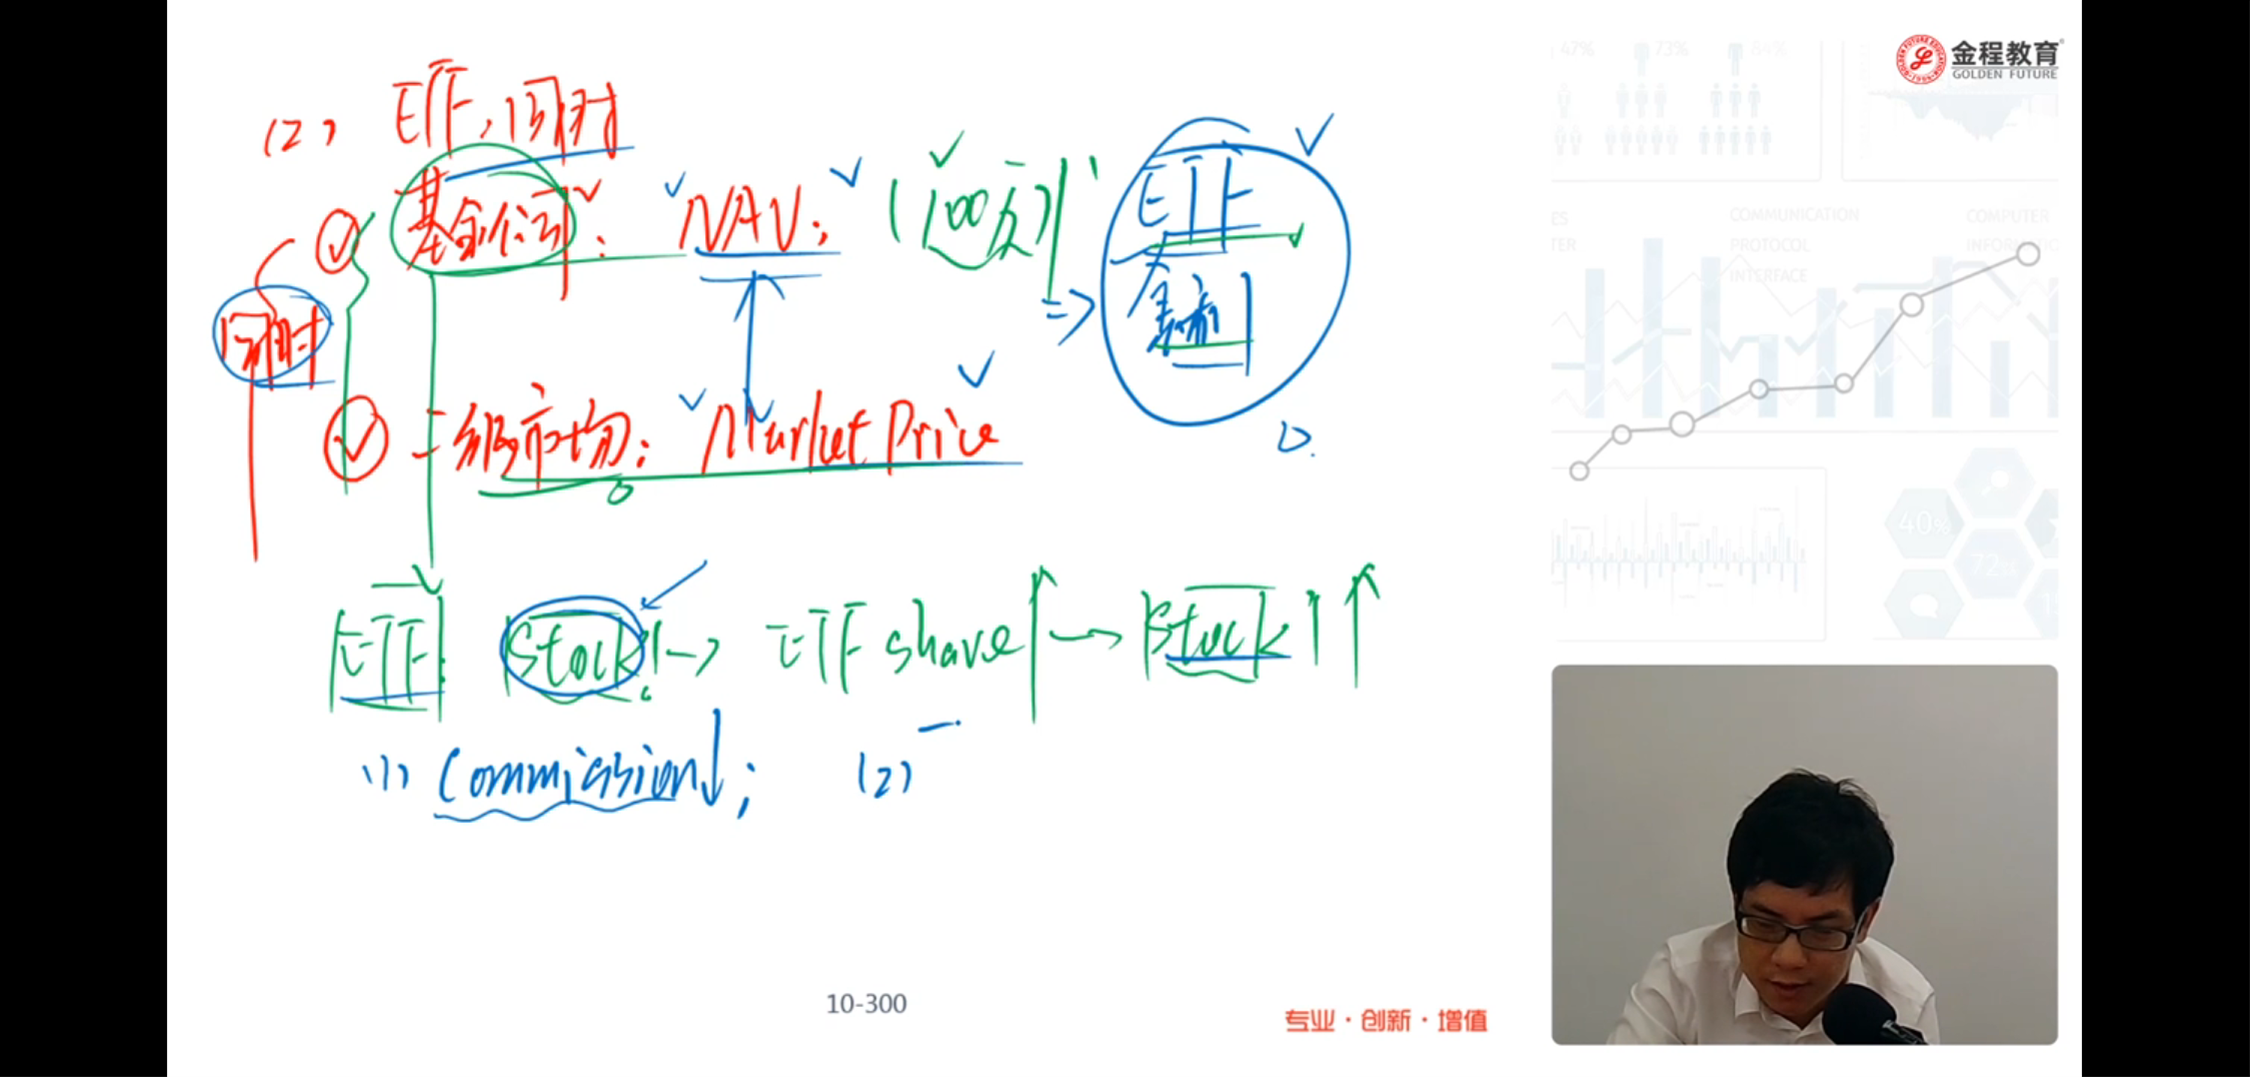 金程教育
GOLDEN FUTURE
(2) ETF, 同时
基金公司: NAV; (100万)
ETF
同时
二级市场: Market Price
ETF: Stock → ETF share → Stock
(1) Commission↓; (2)
47%
73%
84%
COMMUNICATION
PROTOCOL
INTERFACE
COMPUTER
40%
72%
10-300
专业·创新·增值